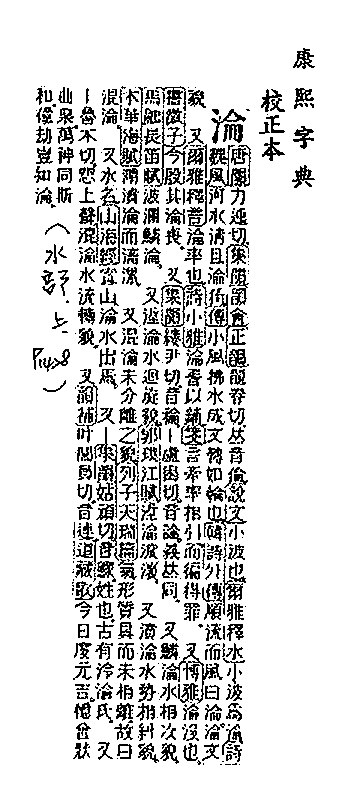 康熙字典
校正本
淪
唐韻力迍切集韻韻會正韻龍春切𠀤音倫說文小波也爾雅釋水小波爲淪詩
魏風河水清且淪猗傳小風拂水成文轉如輪也韓詩外傳順流而風曰淪淪文
貌 又爾雅釋言淪率也詩小雅淪胥以鋪箋言帝率相引而徧得罪 又博雅淪沒也
書微子今殷其淪喪 又集韻縷尹切音稐一盧困切音論義𠀤同 又鱗淪水相次貌
馬融長笛賦波瀾鱗淪 又淪水迴旋貌郭璞江賦淪 又濆淪水勢相糾貌
木華海賦濆淪而滀漯 又混淪未分離之貌列子天瑞篇氣形質具而未相離故曰
混淪 又水名山海經宜山淪水出焉 又一集韻姑頑切音鰥姓也古有泠淪氏 又
一魯本切上聲混淪水流轉貌 又韻補叶閭員切音連道藏歌今日度元吉
幽泉萬神同斯
和億劫豈知淪
(水部上 P1428)